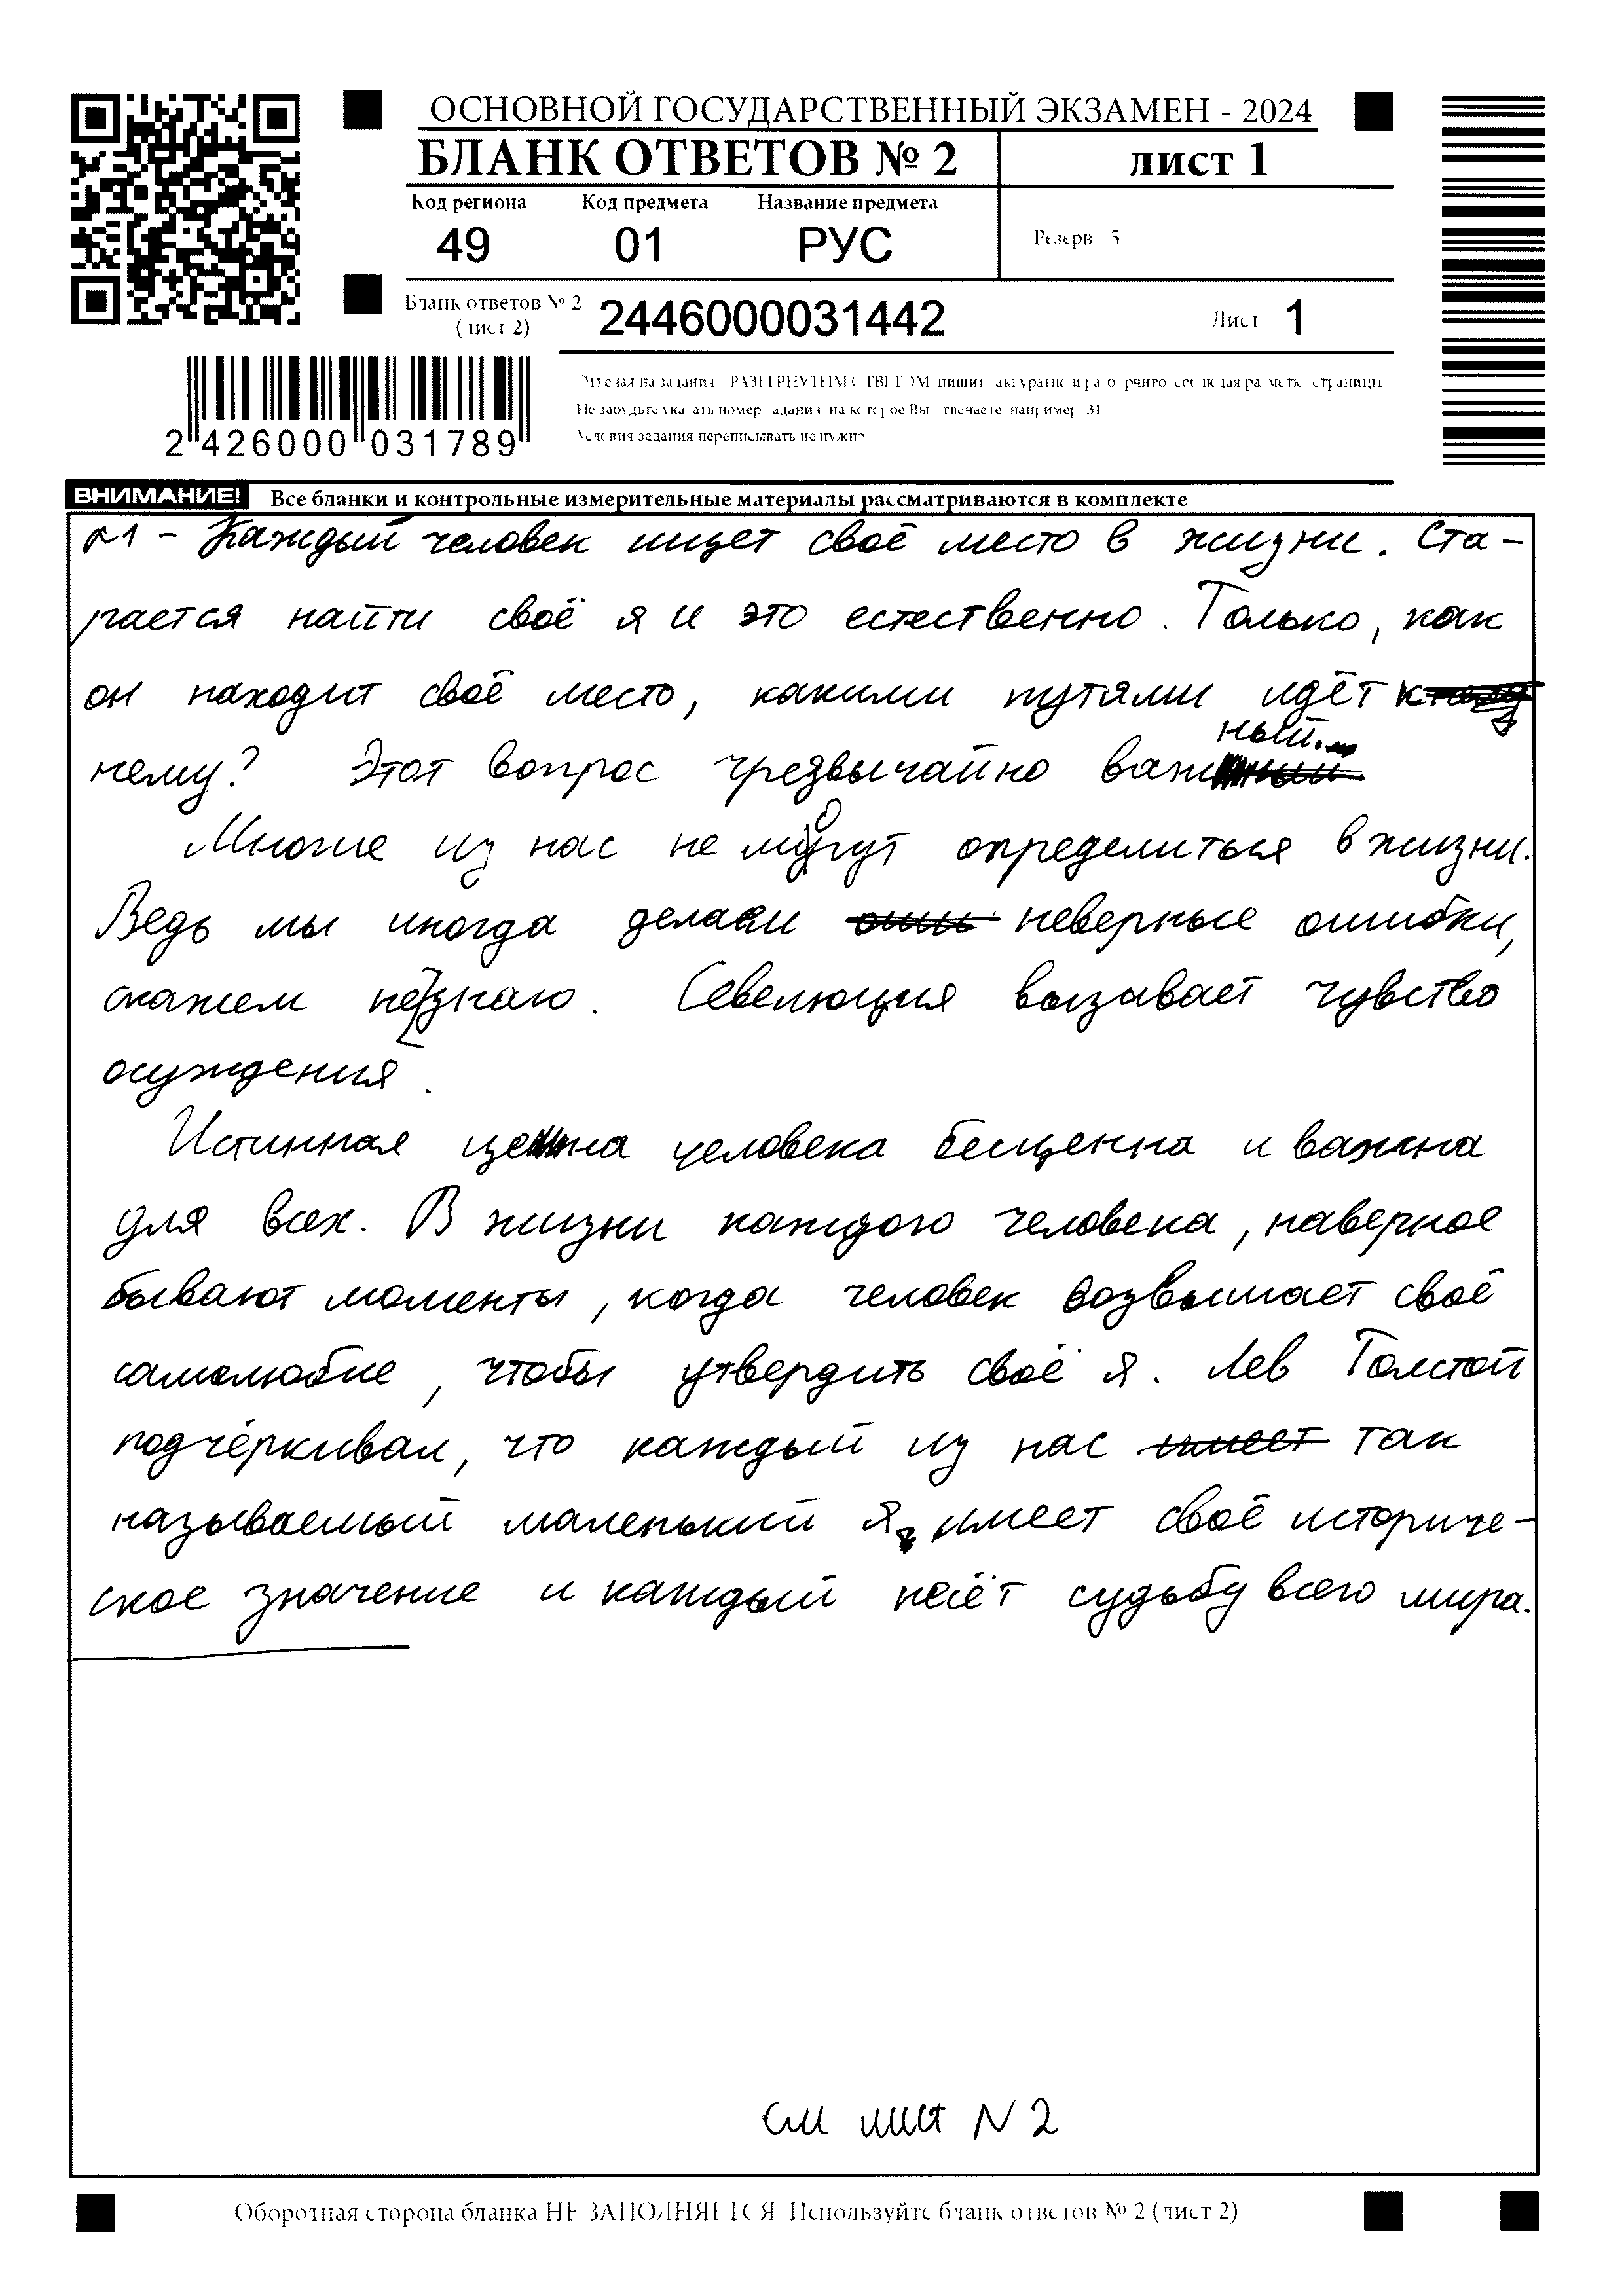 ОСНОВНОЙ ГОСУДАРСТВЕННЫЙ ЭКЗАМЕН - 2024
БЛАНК ОТВЕТОВ № 2
лист 1
Код региона Код предмета Название предмета
49 01 РУС
Резерв 5
Бланк ответов № 2 (лист 2)
2446000031442
Лист 1
2 426000 031789
Не забудьте указать номер задания на которое Вы отвечаете например 31
Условия задания переписывать не нужно
ВНИМАНИЕ! Все бланки и контрольные измерительные материалы рассматриваются в комплекте
№1 - Каждый человек ищет своё место в жизни. Ста-
рается найти своё я и это естественно. Только, как
он находит своё место, какими путями идёт к
нему? Этот вопрос чрезвычайно важный.
Многие из нас не могут определиться в жизни.
Ведь мы иногда делаем неверные ошибки,
скажем не знаю. вызывает чувство
осуждения.
Истинная цена человека бесценна и важна
для всех. В жизни каждого человека, наверное
бывают моменты, когда человек возвышает своё
самолюбие, чтобы утвердить своё я. Лев Толстой
подчёркивал, что каждый из нас так
называемый маленький я, имеет своё историче-
ское значение и каждый несёт судьбу всего мира.
См лист N 2
Оборотная сторона бланка НЕ ЗАПОЛНЯЕТСЯ Используйте бланк ответов № 2 (лист 2)